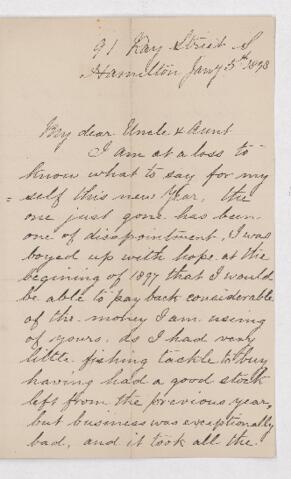 91 Kay Street S
Hamilton Jany 5th 1898
My dear Uncle & Aunt
I am at a loss to
know what to say for my
= self this new Year, the
one just gone has been
one of disapointment, I was
boyed up with hope at the
begining of 1897 that I would
be able to pay back considerable
of the money I am using
of yours. As I had very
little fishing tackle to buy
having had a good stock
left from the previous year,
but business was exceptionally
bad, and it took all the